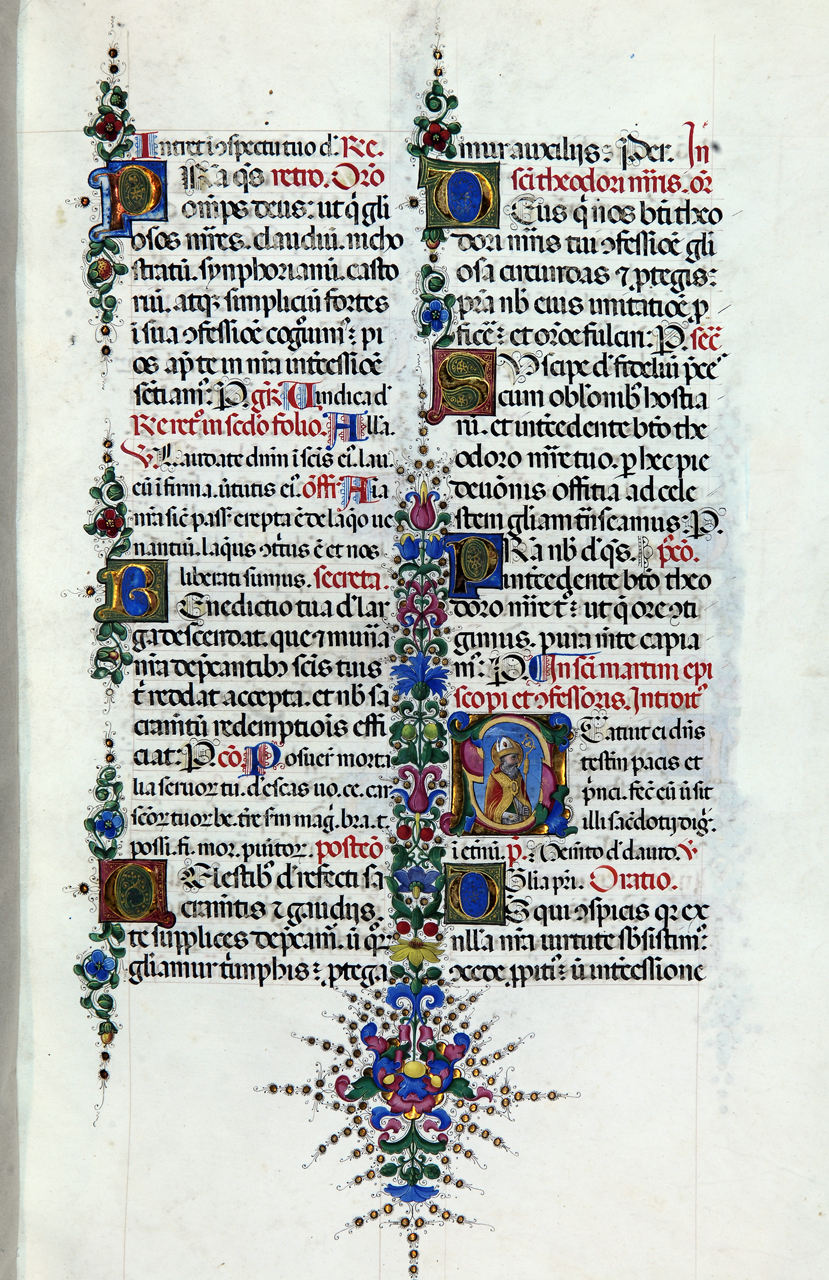 Intret i ɔspectu tuo d. Re.
P Ra q̄s retro. Orō
omp̄s deus: ut q̄ gli
osos m̄res. claudiū. nicho
stratū. synphorianū. casto
riū. atqꝫ simpliciū fortes
i sua ɔfessiōe cogͦuim᷒: pi
os ap̄ te in nr̄a int̄cessiōe
sētiam᷒: P. gr̄. Uindica d̄
Re reto in sc̄do folio. Alla.
℣. Laudate dn̄m i sc̄is ei᷒. lau.
eū i firma. ūtutis ei᷒. offi Aīa
nr̄a sic̄ pass̄ erepta ē de laq̄o ue
nantiū. laqus ɔtritus ē et nos
liberati sumus. secreta.
Benedictio tua d̄ lar
ga descendat. que ⁊ mun̄a
nr̄a dep̄cantibꝫ sc̄is tuis
t̄ reddat accepta. et nb̄ sa
cram̄tū redemptiōis effi
ciat: P cō. Posuer̄ morta
lia seruor tu. d̄ escas uo. ce. car
sc̄or tuor be. t̄re s̄m maḡ. bra. t.
possi. fi. mor. pūitor. postcō
Celestibꝫ d̄ refecti sa
cram̄tis ⁊ gaudijs.
te supplices dep̄cam᷒. ū q̄r
gliamur t̄imphis: ꝓtega
mur auxilijs: Per. In
sc̄i theodori m̄ris. or̄
Deus q̄ nos bt̄i theo
dori m̄ris tui ɔfessiōe gli
osa circundas ⁊ ꝓtegis:
pr̄a nb̄ eius imitatiōe ꝓ
ficē: et or̄oe fulciri: P. sec̄
Suscipe d̄ fideliū p̄ce᷒
cum obl̄onibꝫ hostia
rū. et int̄cedente bt̄o the
odoro m̄re tuo. ꝑ hec pie
deuōnis offitia ad cele
stem gl̄iam t̄nseamus: P.
PRa nb̄ d̄ q̄s. p̄cō.
int̄cedente bt̄o theo
doro m̄re t.: ut q̄ ore ɔti
gimus. pura m̄te capia
m᷒: P. In sc̄i martini epi
scopi et ɔfessoris. Introit᷒
Statuit ei dn̄s
testm̄ pacis et
p̄nci. fec̄ eū ū sit
illi sac̄dotij diḡ.
i etnū. p̄. Memēto d̄ dauid. ℣
Glīa pr̄i. Oratio.
DS qui ɔspicis q̄ ex
nulla nr̄a uirtute sb̄sistim᷒:
ɔcede ꝓpiti᷒: ū int̄cessione